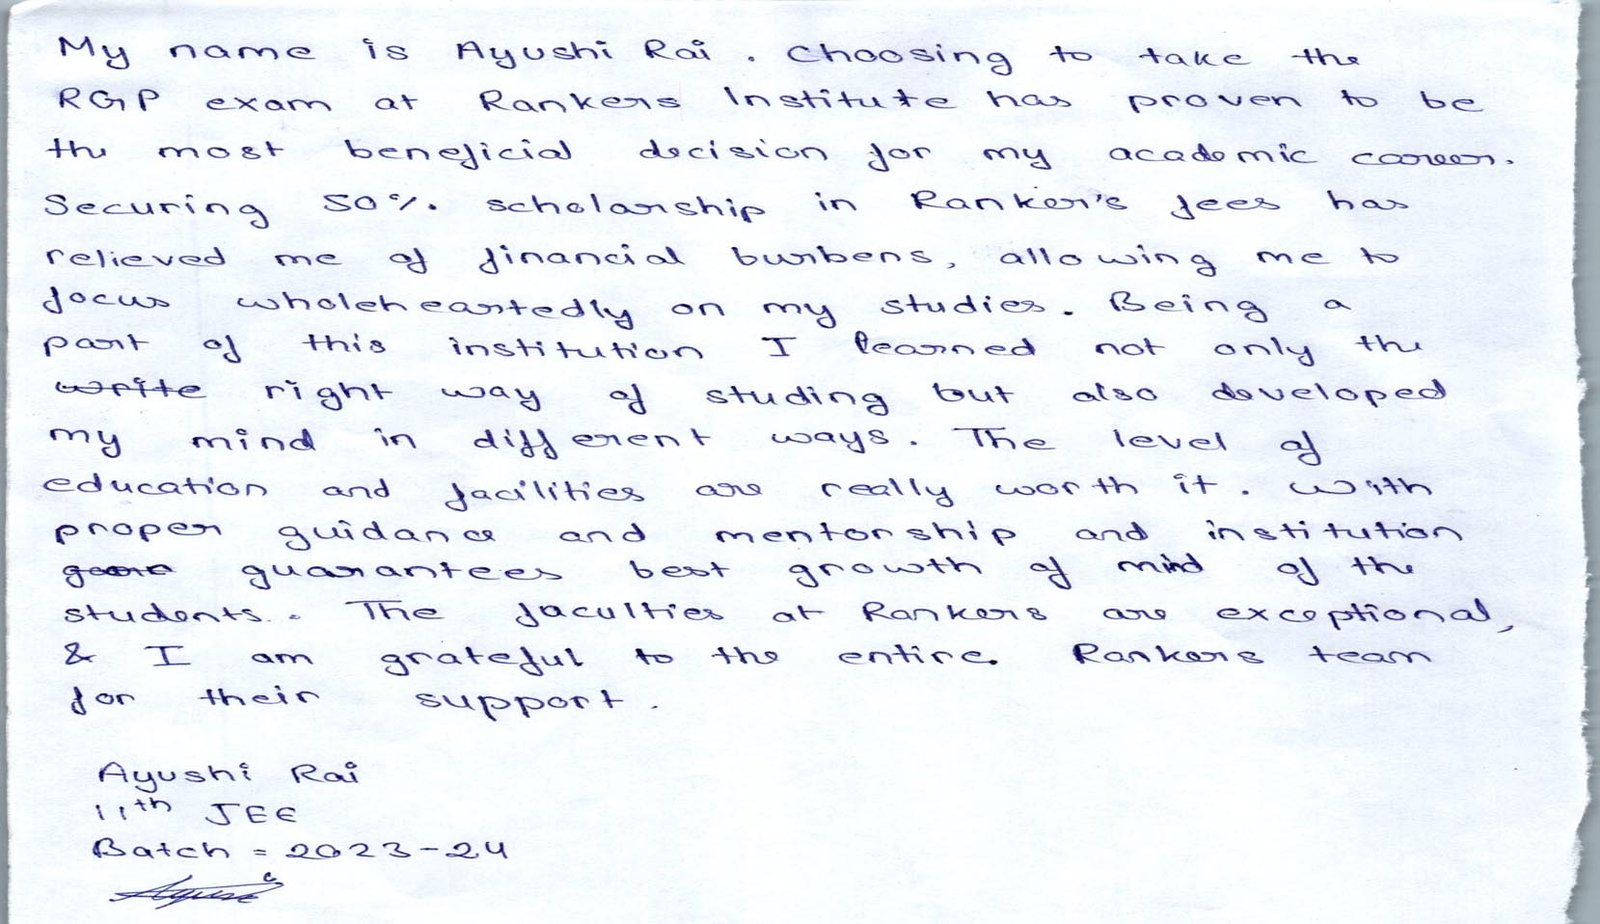 My name is Ayushi Rai . Choosing to take the
RGP exam at Rankers Institute has proven to be
the most beneficial decision for my academic career.
Securing 50%. scholarship in Ranker's fees has
relieved me of financial burbens, allowing me to
focus wholeheartedly on my studies. Being a
part of this institution I learned not only the
write right way of studing but also developed
my mind in different ways. The level of
education and facilities are really worth it. With
proper guidance and mentorship and institution
guarantees best growth of mind of the
students. The faculties at Rankers are exceptional,
& I am grateful to the entire. Rankers team
for their support.
Ayushi Rai
11th JEE
Batch = 2023-24